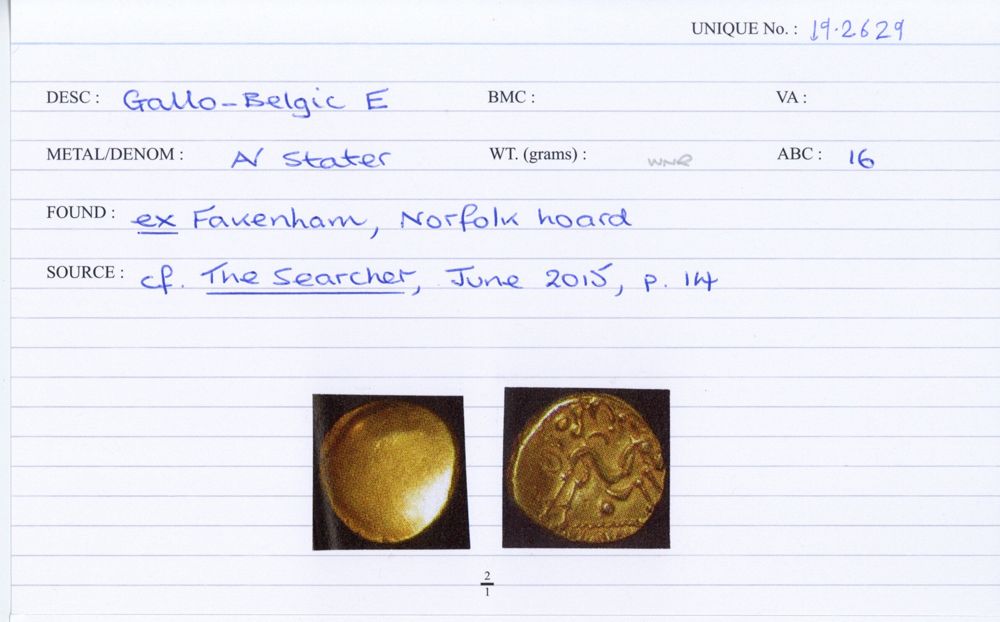 UNIQUE No. : 19.2629
DESC : Gallo-Belgic E BMC : VA :
METAL/DENOM : A/ Stater WT. (grams) : WNR ABC : 16
FOUND : ex Fakenham, Norfolk hoard
SOURCE : cf. The Searcher, June 2015, p. 14
2
1